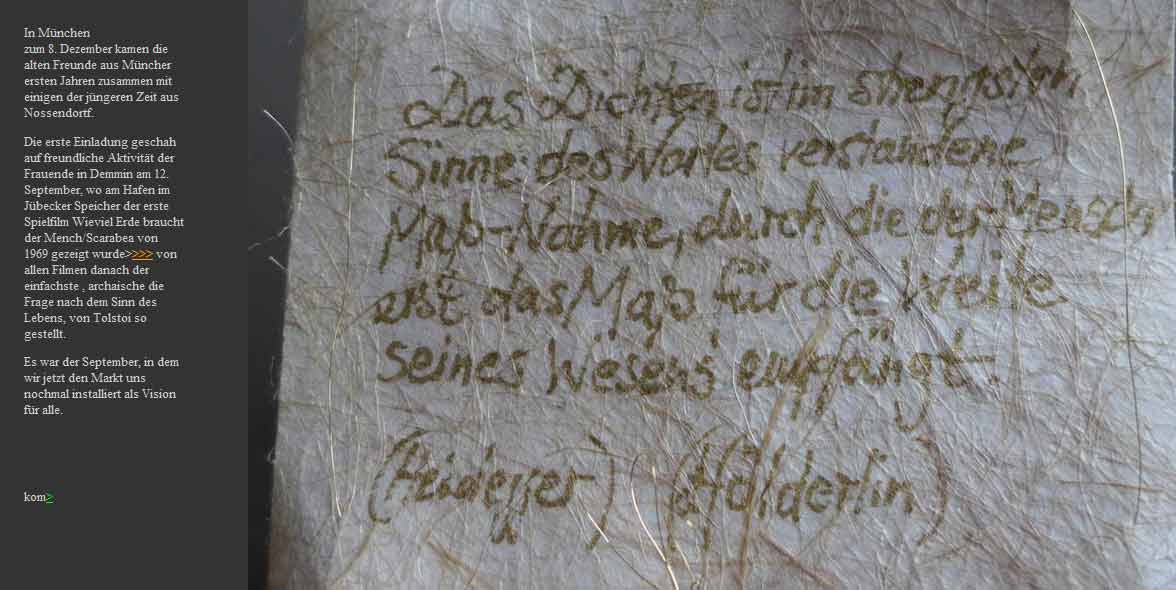 In München
zum 8. Dezember kamen die
alten Freunde aus Müncher
ersten Jahren zusammen mit
einigen der jüngeren Zeit aus
Nossendortf.
Die erste Einladung geschah
auf freundliche Aktivität der
Frauende in Demmin am 12.
September, wo am Hafen im
Jübecker Speicher der erste
Spielfilm Wieviel Erde braucht
der Mench/Scarabea von
1969 gezeigt wurde>>>> von
allen Filmen danach der
einfachste , archaische die
Frage nach dem Sinn des
Lebens, von Tolstoi so
gestellt.
Es war der September, in dem
wir jetzt den Markt uns
nochmal installiert als Vision
für alle.
kom>
Das Dichten ist im strengsten
Sinne des Wortes verstandene
Maß-Nahme, durch die der Mensch
erst das Maß für die Weite
seines Wesens empfängt.
(Heidegger) (Hölderlin)